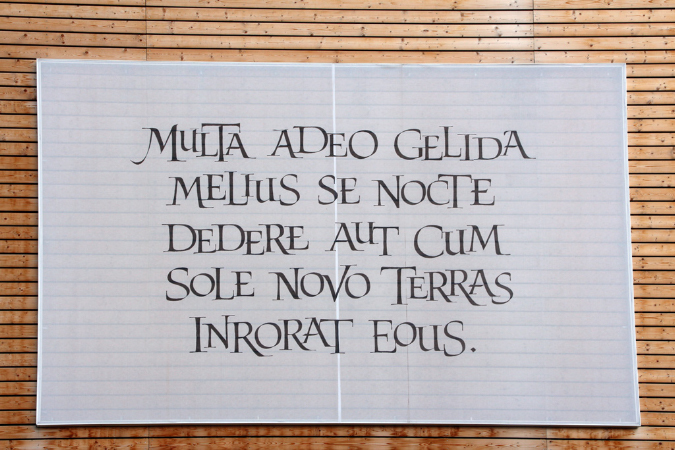 MULTA ADEO GELIDA
MELIUS SE NOCTE
DEDERE AUT CUM
SOLE NOVO TERRAS
INRORAT EOUS.